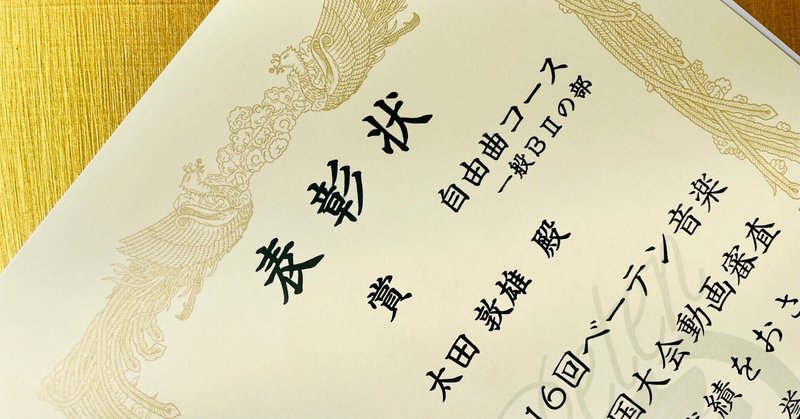 表彰状
自由曲コース
一般BⅡの部
賞
太田 敦雄 殿
16回ベーテン音楽
国大会動画審査
績をおさ